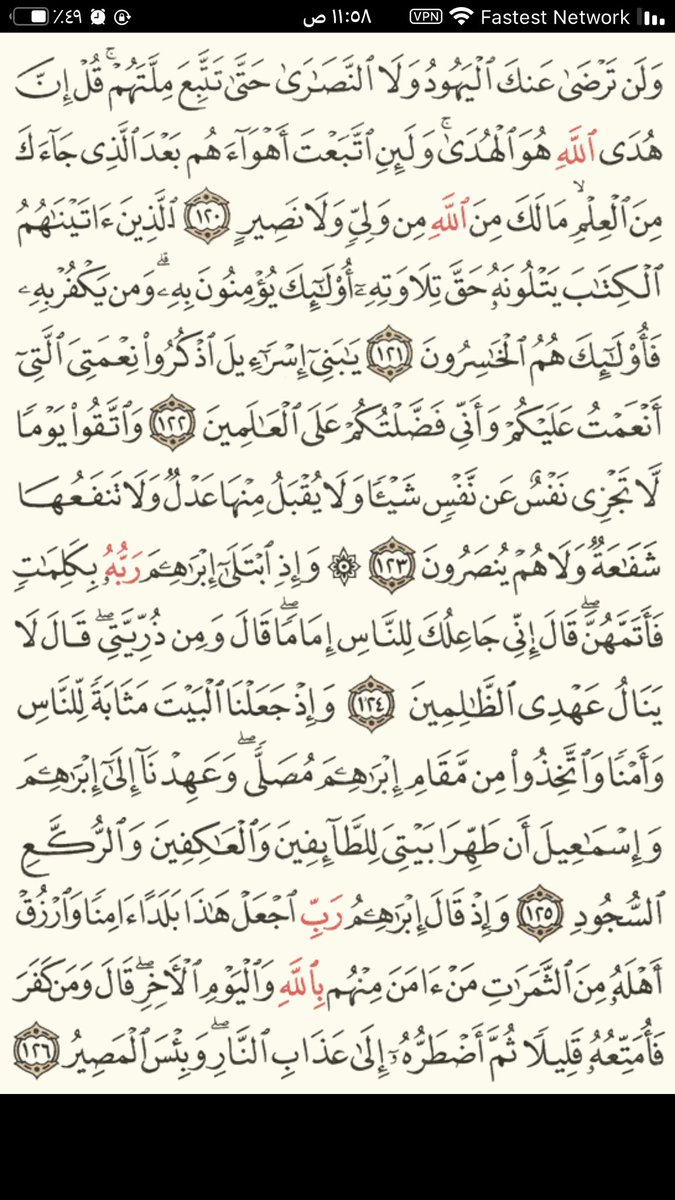 ٪٤٩ ١١:٥٨ ص VPN Fastest Network
وَلَن تَرۡضَىٰ عَنكَ ٱلۡيَهُودُ وَلَا ٱلنَّصَٰرَىٰ حَتَّىٰ تَتَّبِعَ مِلَّتَهُمۡۗ قُلۡ إِنَّ
هُدَى ٱللَّهِ هُوَ ٱلۡهُدَىٰۗ وَلَئِنِ ٱتَّبَعۡتَ أَهۡوَآءَهُم بَعۡدَ ٱلَّذِي جَآءَكَ
مِنَ ٱلۡعِلۡمِ مَا لَكَ مِنَ ٱللَّهِ مِن وَلِيّٖ وَلَا نَصِيرٍ ١٢٠ ٱلَّذِينَ ءَاتَيۡنَٰهُمُ
ٱلۡكِتَٰبَ يَتۡلُونَهُۥ حَقَّ تِلَاوَتِهِۦٓ أُوْلَٰٓئِكَ يُؤۡمِنُونَ بِهِۦۗ وَمَن يَكۡفُرۡ بِهِۦ
فَأُوْلَٰٓئِكَ هُمُ ٱلۡخَٰسِرُونَ ١٢١ يَٰبَنِيٓ إِسۡرَٰٓءِيلَ ٱذۡكُرُواْ نِعۡمَتِيَ ٱلَّتِيٓ
أَنۡعَمۡتُ عَلَيۡكُمۡ وَأَنِّي فَضَّلۡتُكُمۡ عَلَى ٱلۡعَٰلَمِينَ ١٢٢ وَٱتَّقُواْ يَوۡمٗا
لَّا تَجۡزِي نَفۡسٌ عَن نَّفۡسٖ شَيۡـٔٗا وَلَا يُقۡبَلُ مِنۡهَا عَدۡلٞ وَلَا تَنفَعُهَا
شَفَٰعَةٞ وَلَا هُمۡ يُنصَرُونَ ١٢٣ ۞ وَإِذِ ٱبۡتَلَىٰٓ إِبۡرَٰهِـۧمَ رَبُّهُۥ بِكَلِمَٰتٖ
فَأَتَمَّهُنَّۖ قَالَ إِنِّي جَاعِلُكَ لِلنَّاسِ إِمَامٗاۖ قَالَ وَمِن ذُرِّيَّتِيۖ قَالَ لَا
يَنَالُ عَهۡدِي ٱلظَّٰلِمِينَ ١٢٤ وَإِذۡ جَعَلۡنَا ٱلۡبَيۡتَ مَثَابَةٗ لِّلنَّاسِ
وَأَمۡنٗا وَٱتَّخِذُواْ مِن مَّقَامِ إِبۡرَٰهِـۧمَ مُصَلّٗىۖ وَعَهِدۡنَآ إِلَىٰٓ إِبۡرَٰهِـۧمَ
وَإِسۡمَٰعِيلَ أَن طَهِّرَا بَيۡتِيَ لِلطَّآئِفِينَ وَٱلۡعَٰكِفِينَ وَٱلرُّكَّعِ
ٱلسُّجُودِ ١٢٥ وَإِذۡ قَالَ إِبۡرَٰهِـۧمُ رَبِّ ٱجۡعَلۡ هَٰذَا بَلَدًا ءَامِنٗا وَٱرۡزُقۡ
أَهۡلَهُۥ مِنَ ٱلثَّمَرَٰتِ مَنۡ ءَامَنَ مِنۡهُم بِٱللَّهِ وَٱلۡيَوۡمِ ٱلۡأٓخِرِۖ قَالَ وَمَن كَفَرَ
فَأُمَتِّعُهُۥ قَلِيلٗا ثُمَّ أَضۡطَرُّهُۥٓ إِلَىٰ عَذَابِ ٱلنَّارِۖ وَبِئۡسَ ٱلۡمَصِيرُ ١٢٦